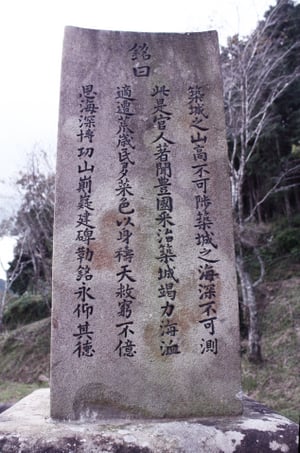 銘曰
築城之山高不可陟築城之海深不可測
此是官人著聞豊國来治築城竭力溝洫
適遭荒歳民多菜色以身禱天救窮不億
恩海深博功山崱嶷建碑勒銘永仰其徳